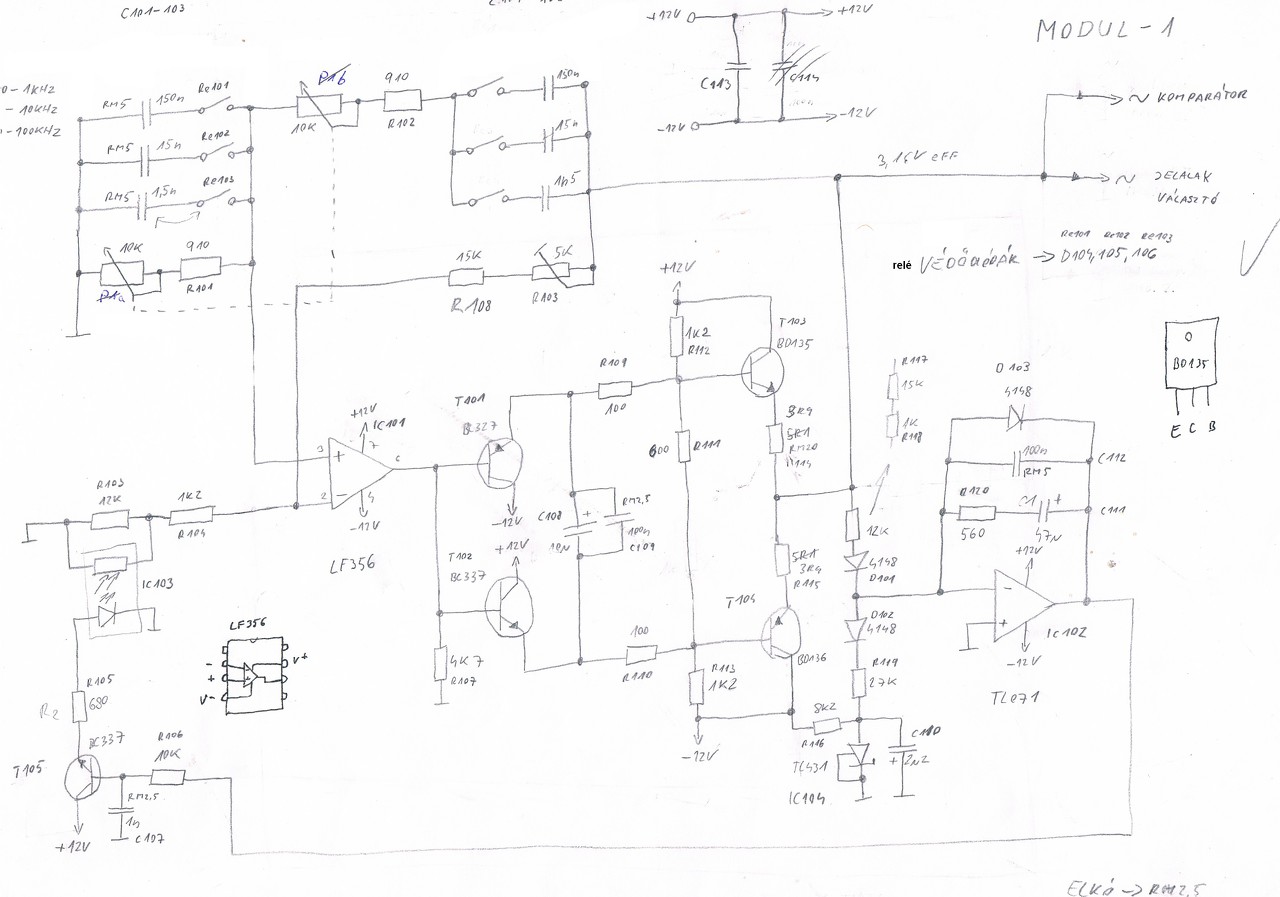 C101-103
+12V
+12V
C113
C114
-12V
-12V
MODUL-1
0-1KHZ
-10KHZ
-100KHZ
RM5
150n
Re101
RM5
15n
Re102
RM5
1,5n
Re103
10K
P1a
910
R101
P1b
10K
910
R102
150n
15n
1n5
15K
R108
5K
R103
~ KOMPARÁTOR
3,16V eFF
~ JELALAK
VÁLASZTÓ
Re101 Re102 Re103
relé VÉDŐDIÓDÁK → D104,105,106
+12V
1K2
R112
T103
BD135
R109
100
600
R111
3R9
5R1
RM20
R114
R117
15K
1K
R118
D103
4148
100n
RM5
C112
R120
560
C1
+
47N
C111
BD135
E C B
T101
BC327
+12V
IC101
3
+
7
6
2
-
4
-12V
LF356
-12V
+12V
T102
BC337
C108
+
10N
RM2,5
100n
C109
R103
12K
1K2
R104
IC103
12K
4148
D101
D102
4148
5R1
3R9
R115
T104
BD136
+12V
-
+
IC102
-12V
TL071
LF356
-
+
V-
V+
4K7
R107
100
R110
R113
1K2
-12V
R119
27K
8K2
R116
TL431
IC104
C110
+ 2N2
R105
680
R2
BC337
T105
R106
10K
RM2,5
1n
C107
+12V
ELKÓ → RM2,5